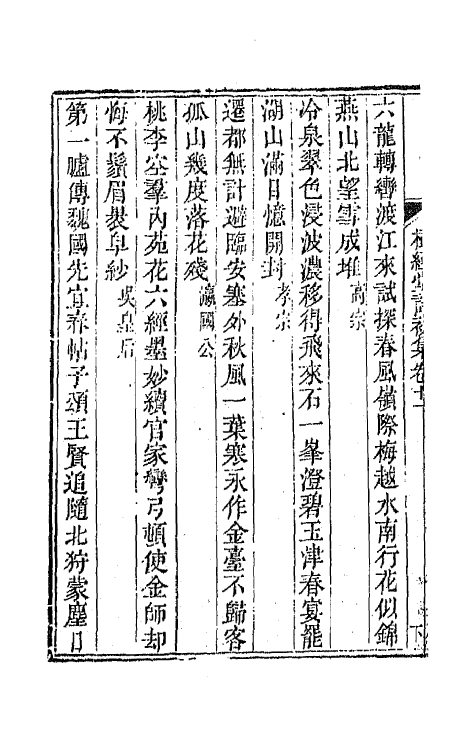 六龍轉轡渡江來試探春風嶺際梅越水南行花似錦
燕山北望雪成堆高宗
冷泉翠色浸波濃移得飛來石一峯澄碧玉津春宴罷
湖山滿目憶開封孝宗
遷都無計避臨安塞外秋風一葉寒永作金臺不歸客
孤山幾度落花殘瀛國公
桃李空羣內苑花六經墨妙續官家彎弓頓使金師却
悔不鬚眉裝皁紗吳皇后
第一臚傳魏國先宜春帖子頌王賢追隨北狩蒙塵日